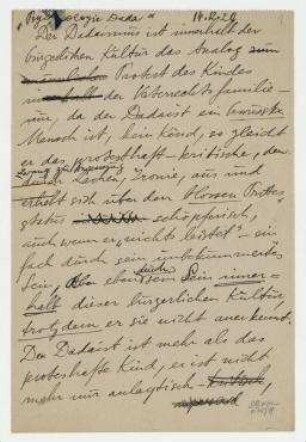 "Psychologie Dada" 14.12.20
Der Dadaismus ist innerhalb der
bürgerlichen Kultur das Analog zum
Protest des Kindes
innerhalb der Vaterrechtsfamilie –
nur, da der Dadaist ein bewusster
Mensch ist, kein Kind, so gleicht
er das protesthaft-kritische, den
durch Lachen, Ironie, aus und
erhebt sich über den blossen
status schöpferisch,
auch wenn er „nichts leistet" – ein
fach durch sein unbekümmertes
Sein, aber eben durch sein Sein inner-
halb dieser bürgerlichen Kultur,
trotzdem er sie nicht anerkennt.
Der Dadaist ist mehr als das
protesthafte Kind, er ist nicht
mehr nur analytisch – kritisch,